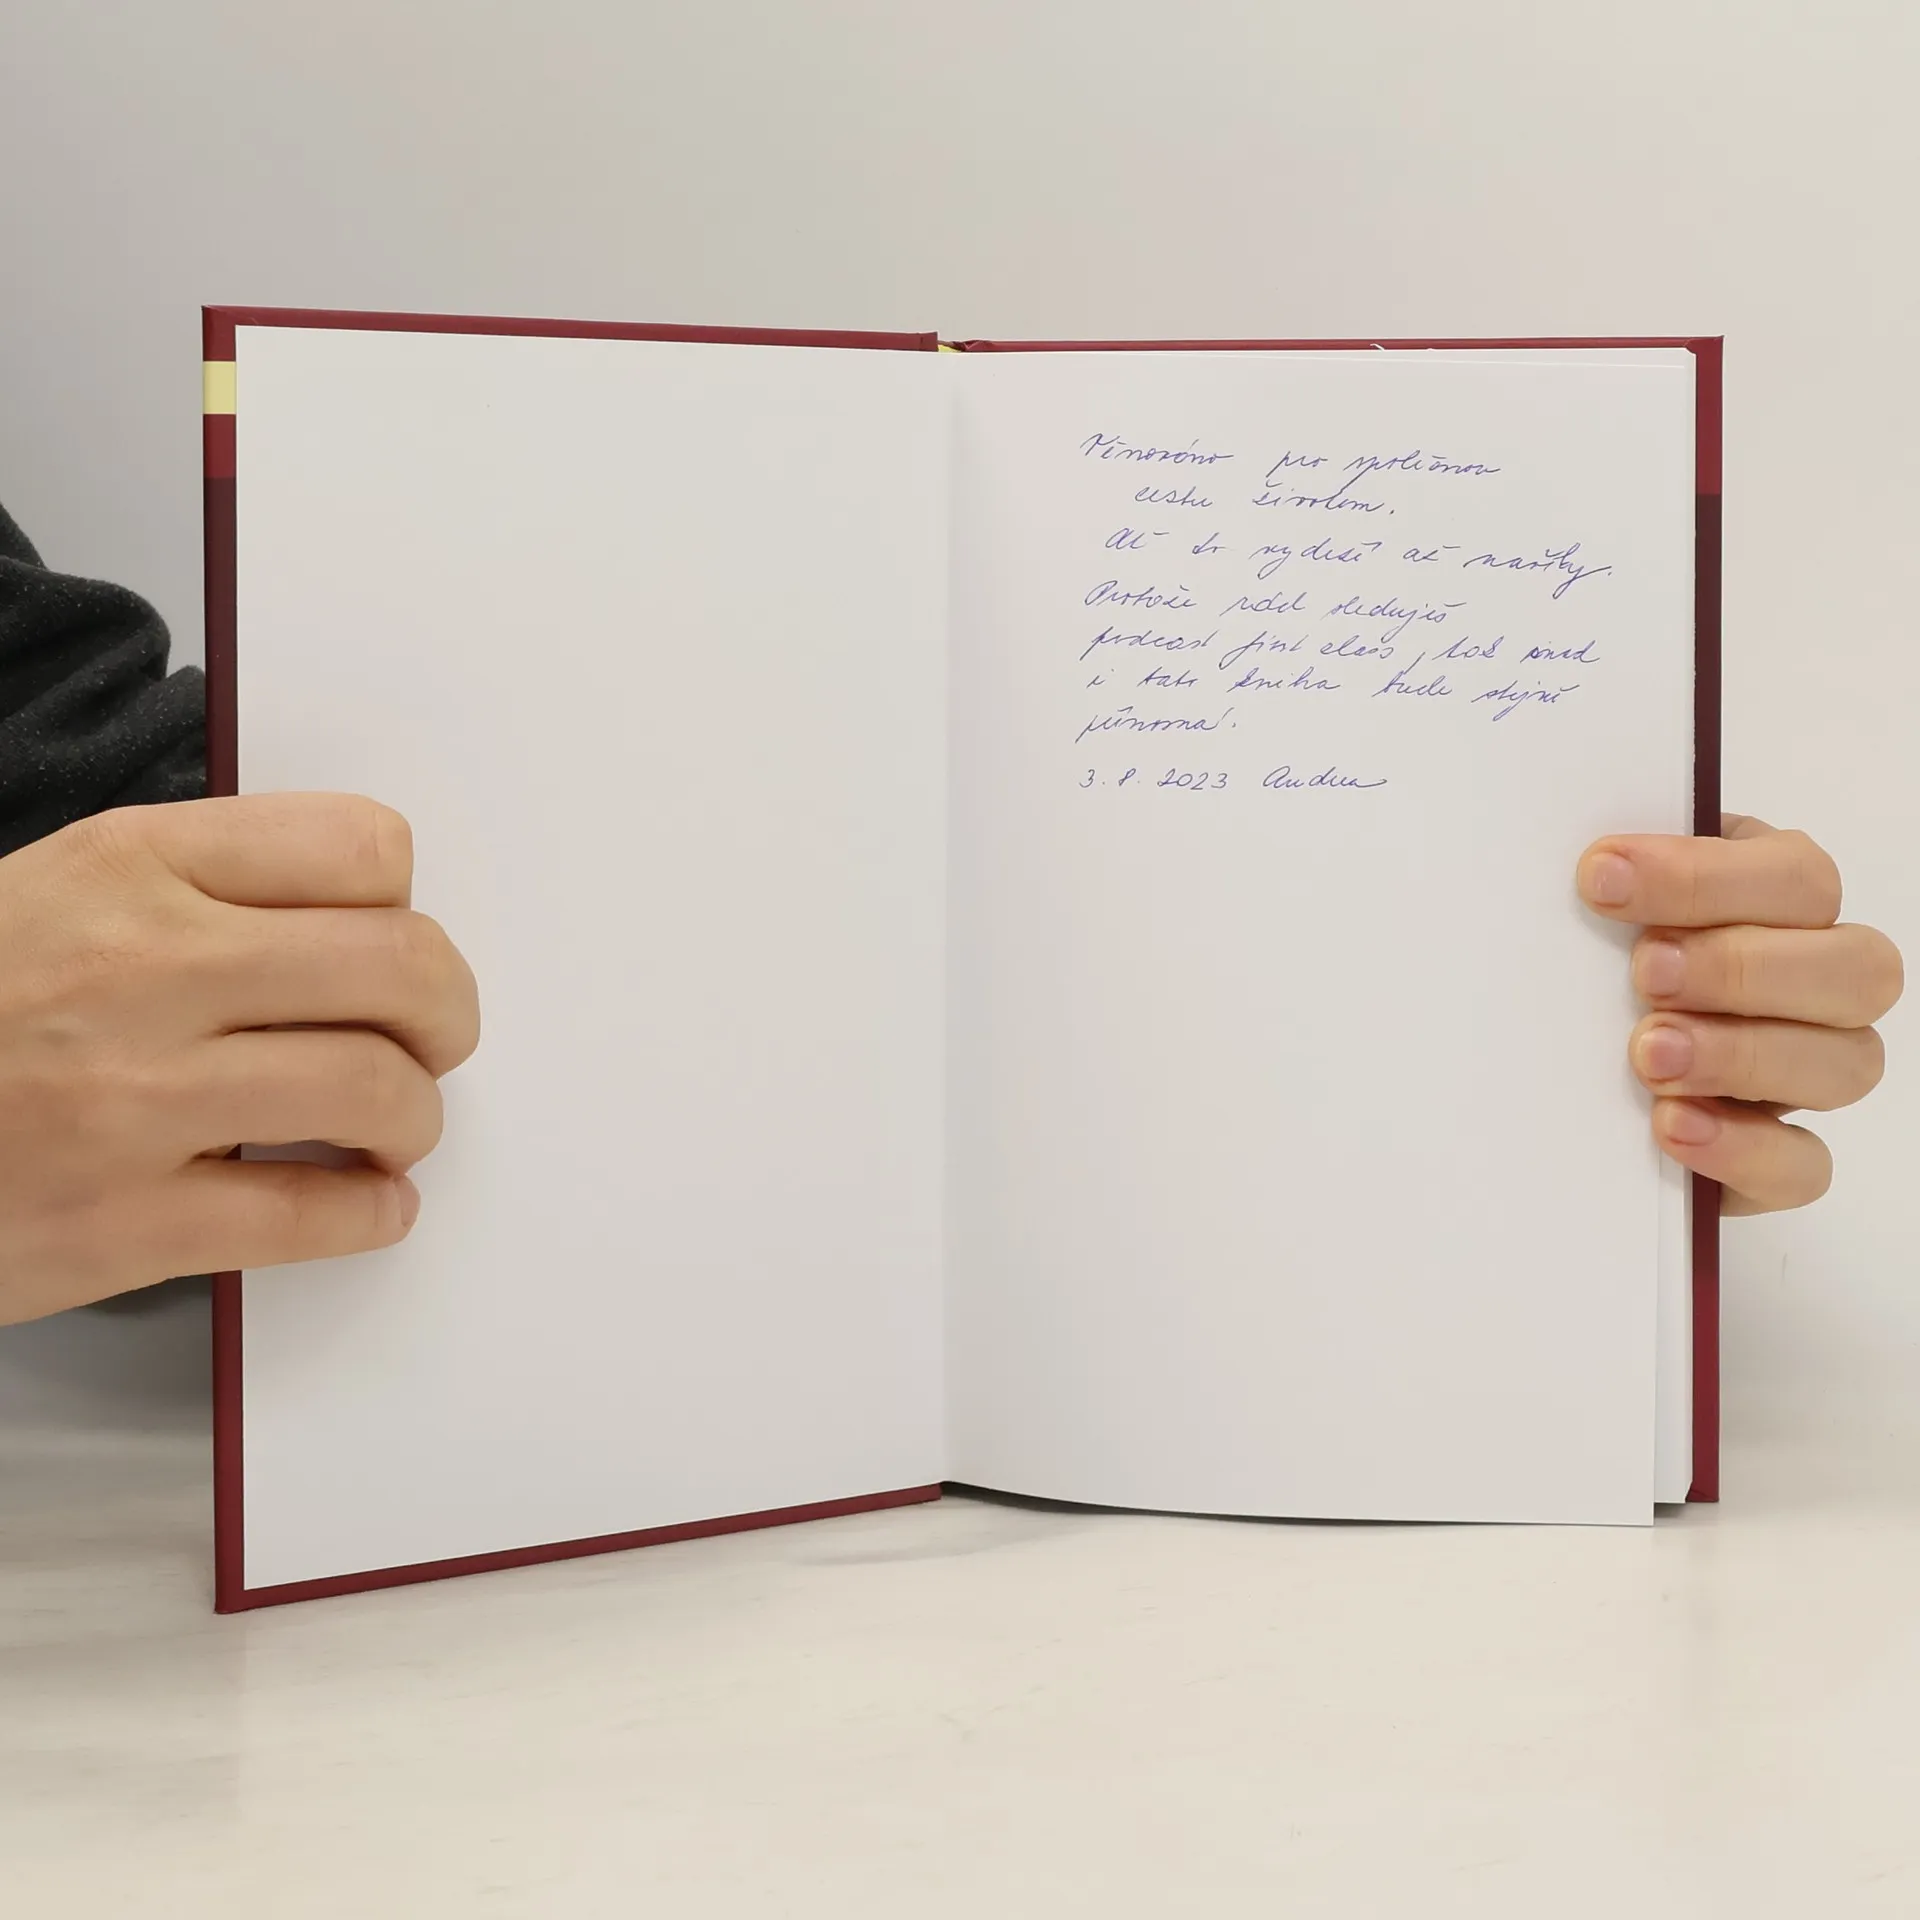 Věnováno pro společnou
cestu životem.
Ať to vydrží až navěky.
Protože rád sleduješ
podcast first class, tož snad
i tato kniha bude stejně
přínosná.
3. 8. 2023 Andrea